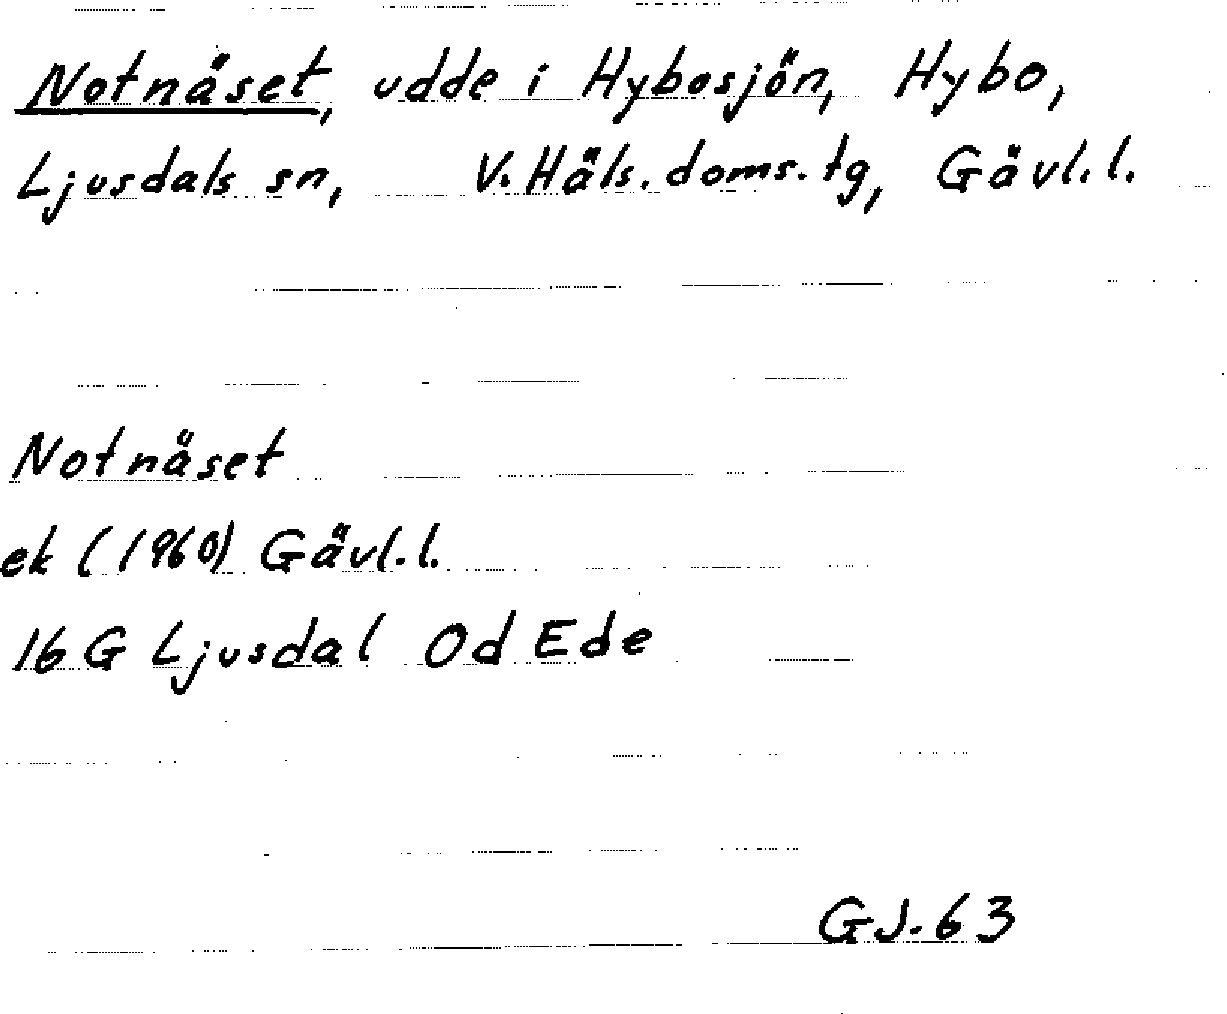 Notnäset, udde i Hybosjön, Hybo,
Ljusdals sn, V. Häls. doms. tg, Gävl. l.
Notnäset
ek (1960) Gävl. l.
16 G Ljusdal Od Ede
GJ. 63